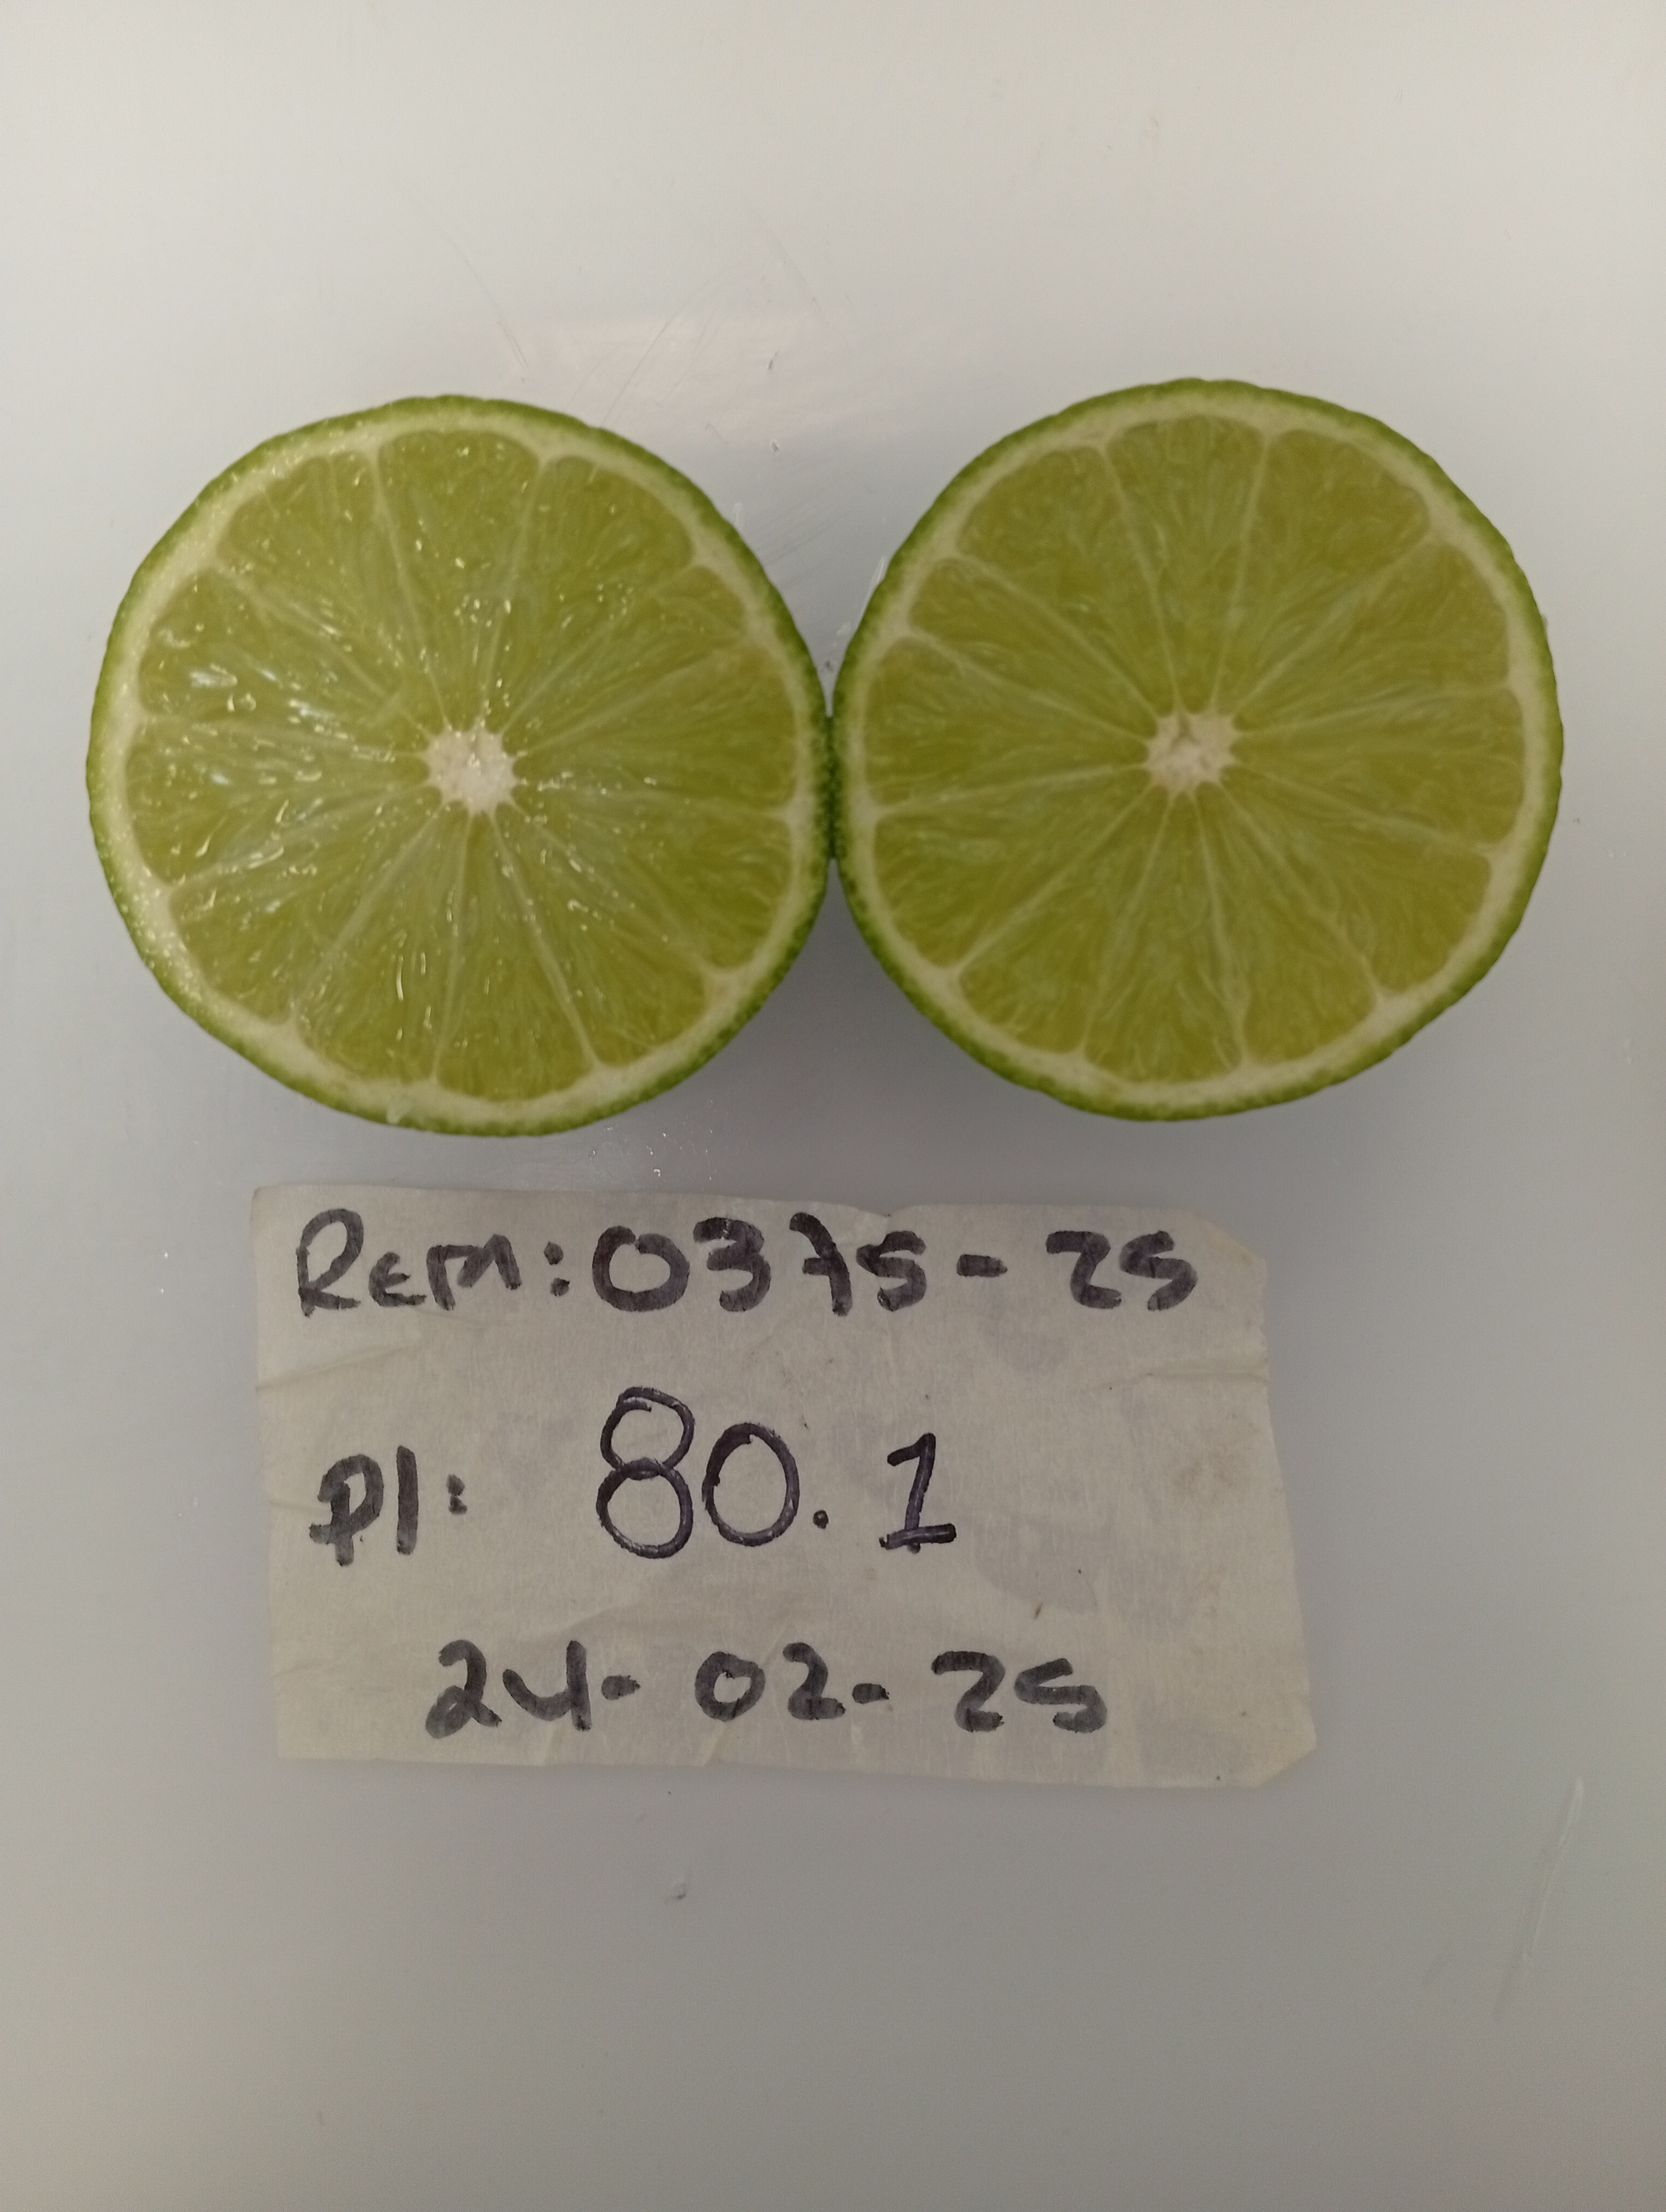 REM: 0375-25
Pl: 80.1
24-02-25